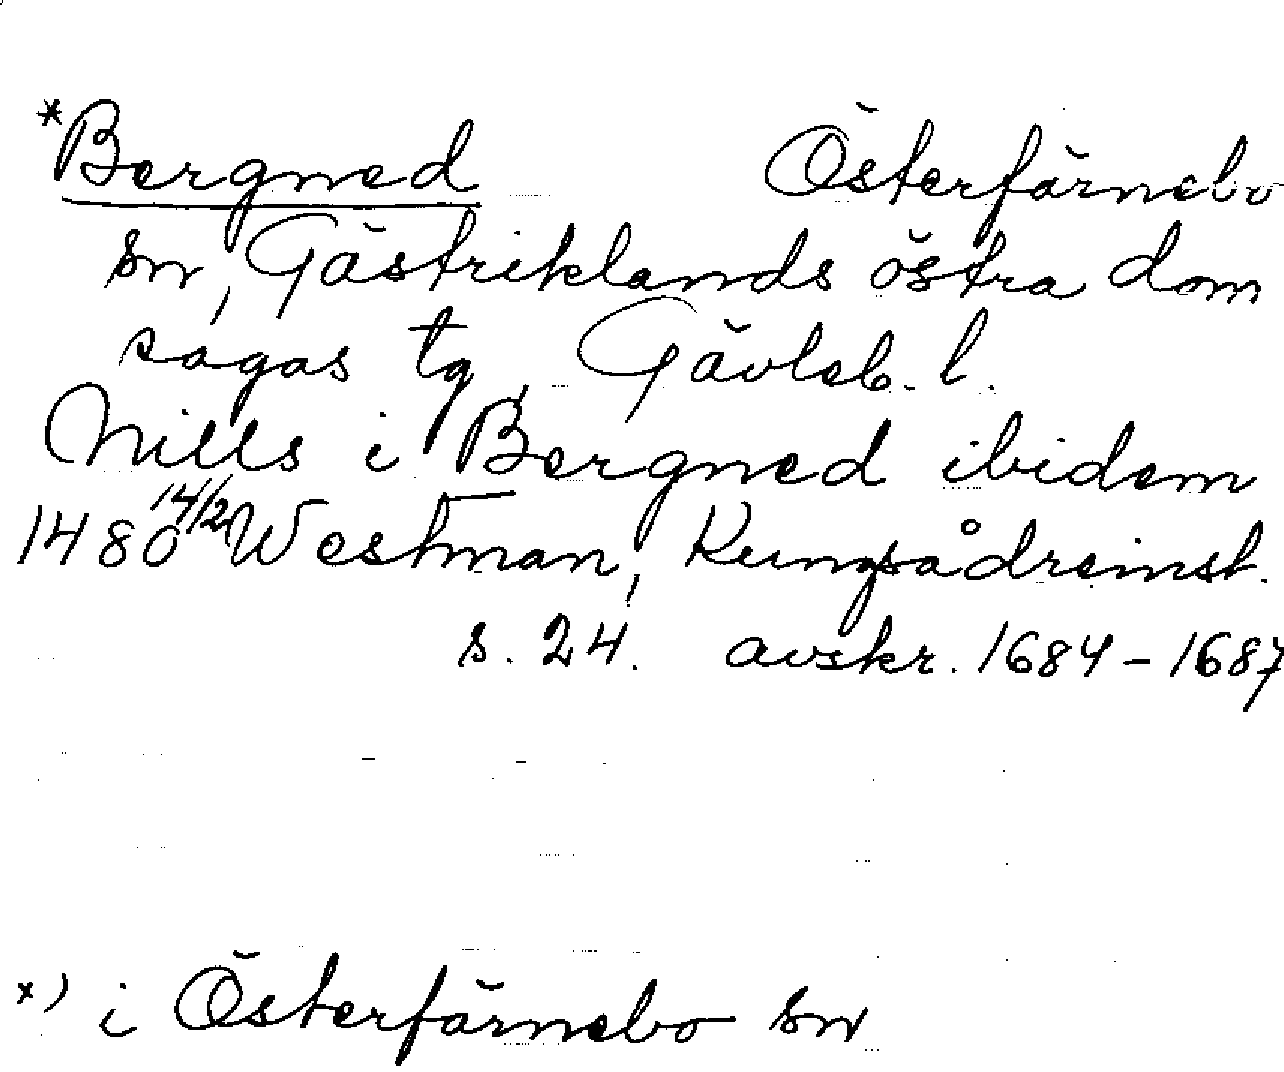 *Bergned Österfärnebo
sn, Gästriklands östra dom
sagas tg, Gävleb. l.
Nills i Bergned ibidem
1480 14/2 Westman, Kungsådreinst.
s. 24. avskr. 1684-1687
x) i Österfärnebo sn